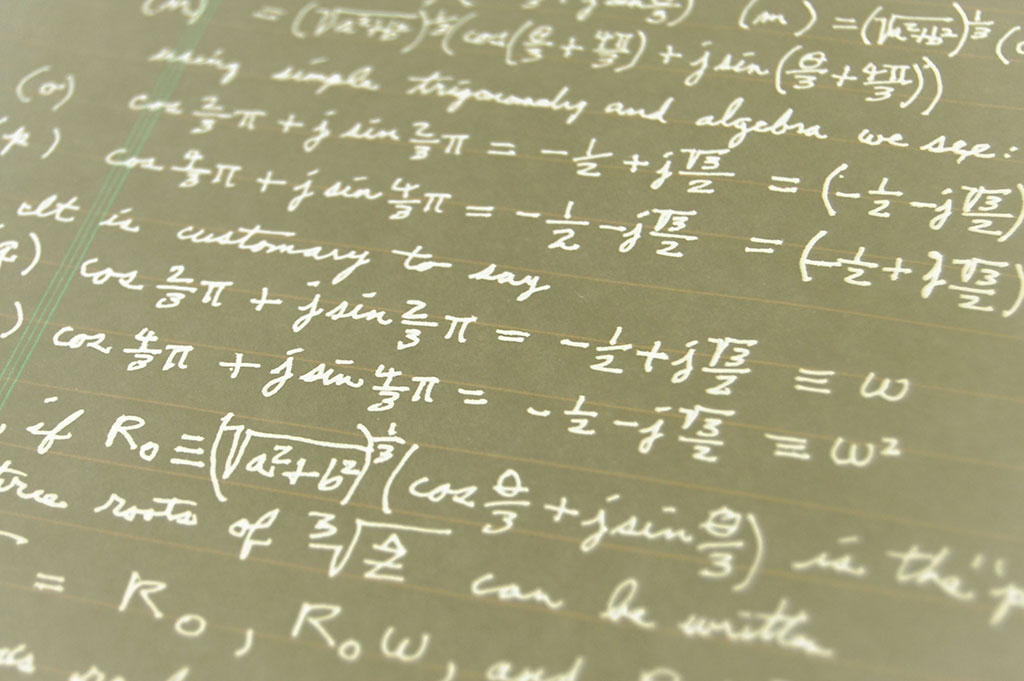 (m) = (√a²+b²)^⅓ (cos(θ/3 + 4π/3) + j sin(θ/3 + 4π/3))
using simple trigonometry and algebra we see:
(o) cos 2/3 π + j sin 2/3 π = -1/2 + j √3/2 = (-1/2 - j √3/2)
(p) cos 4/3 π + j sin 4/3 π = -1/2 - j √3/2 = (-1/2 + j √3/2)
It is customary to say
(q) cos 2/3 π + j sin 2/3 π = -1/2 + j √3/2 ≡ ω
) cos 4/3 π + j sin 4/3 π = -1/2 - j √3/2 ≡ ω²
, if R₀ ≡ (√a²+b²)^⅓ (cos θ/3 + j sin θ/3) is the "p
roots of ³√Z can be written
= R₀, R₀ω, and